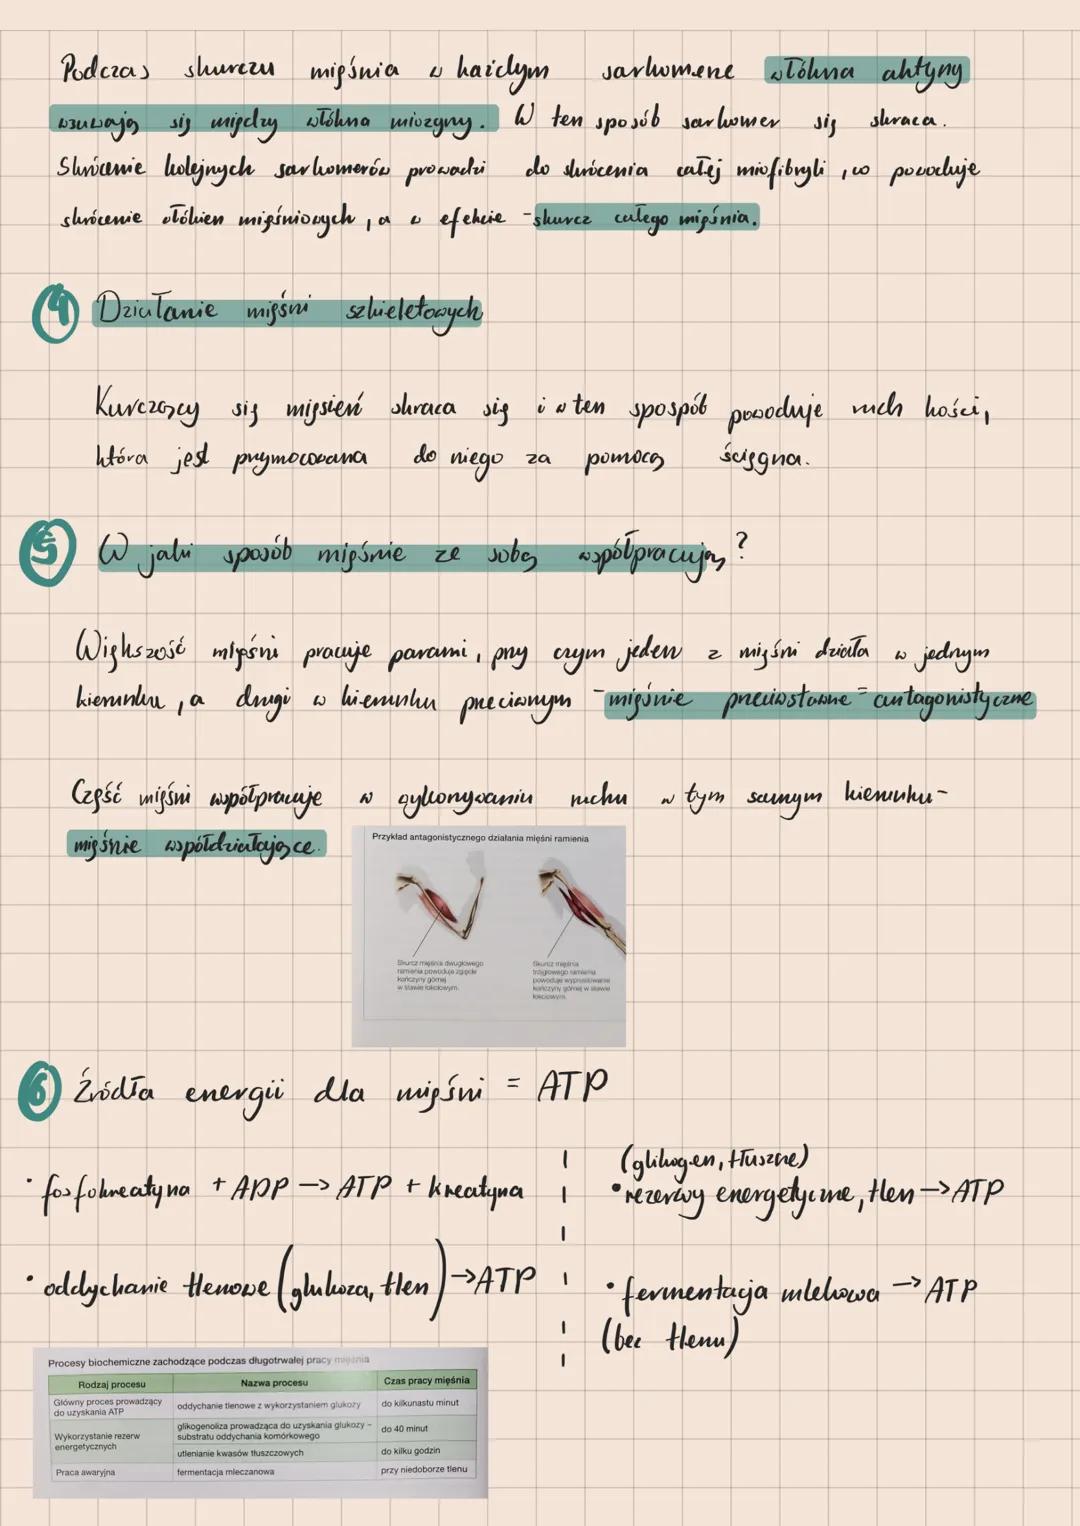 Podczas skurczu mięśnia w każdym sarkomerze włókna aktyny
wsuwają się między włókna miozyny. W ten sposób sarkomer się skraca.
Skrócenie kolejnych sarkomerów prowadzi do skrócenia całej miofibryli, co powoduje
skrócenie włókien mięśniowych, a w efekcie - skurcz całego mięśnia.
4 Działanie mięśni szkieletowych
Kurczący się mięsień skraca się i w ten spospób powoduje ruch kości,
która jest przymocowana do niego za pomocą ścięgna.
5 W jaki sposób mięśnie ze sobą współpracują?
Większość mięśni pracuje parami, przy czym jeden z mięśni działa w jednym
kierunku, a drugi w kierunku przeciwnym - mięśnie przeciwstawne = antagonistyczne
Część mięśni współpracuje w wykonywaniu ruchu w tym samym kierunku -
mięśnie współdziałające.
Przykład antagonistycznego działania mięśni ramienia
Skurcz mięśnia dwugłowego
ramienia powoduje zgięcie
kończyny górnej
w stawie łokciowym.
Skurcz mięśnia
trójgłowego ramienia
powoduje wyprostowanie
kończyny górnej w stawie
łokciowym.
6 Źródła energii dla mięśni = ATP
• fosfokreatyna + ADP → ATP + kreatyna
• oddychanie tlenowe (glukoza, tlen) → ATP
(glikogen, tłuszcze)
• rezerwy energetyczne, tlen → ATP
• fermentacja mlekowa → ATP
(bez tlenu)
Procesy biochemiczne zachodzące podczas długotrwałej pracy mięśnia
Rodzaj procesu Nazwa procesu Czas pracy mięśnia
Główny proces prowadzący
do uzyskania ATP
oddychanie tlenowe z wykorzystaniem glukozy
do kilkunastu minut
Wykorzystanie rezerw
energetycznych
glikogenoliza prowadząca do uzyskania glukozy –
substratu oddychania komórkowego
do 40 minut
utlenianie kwasów tłuszczowych
do kilku godzin
Praca awaryjna
fermentacja mleczanowa
przy niedoborze tlenu